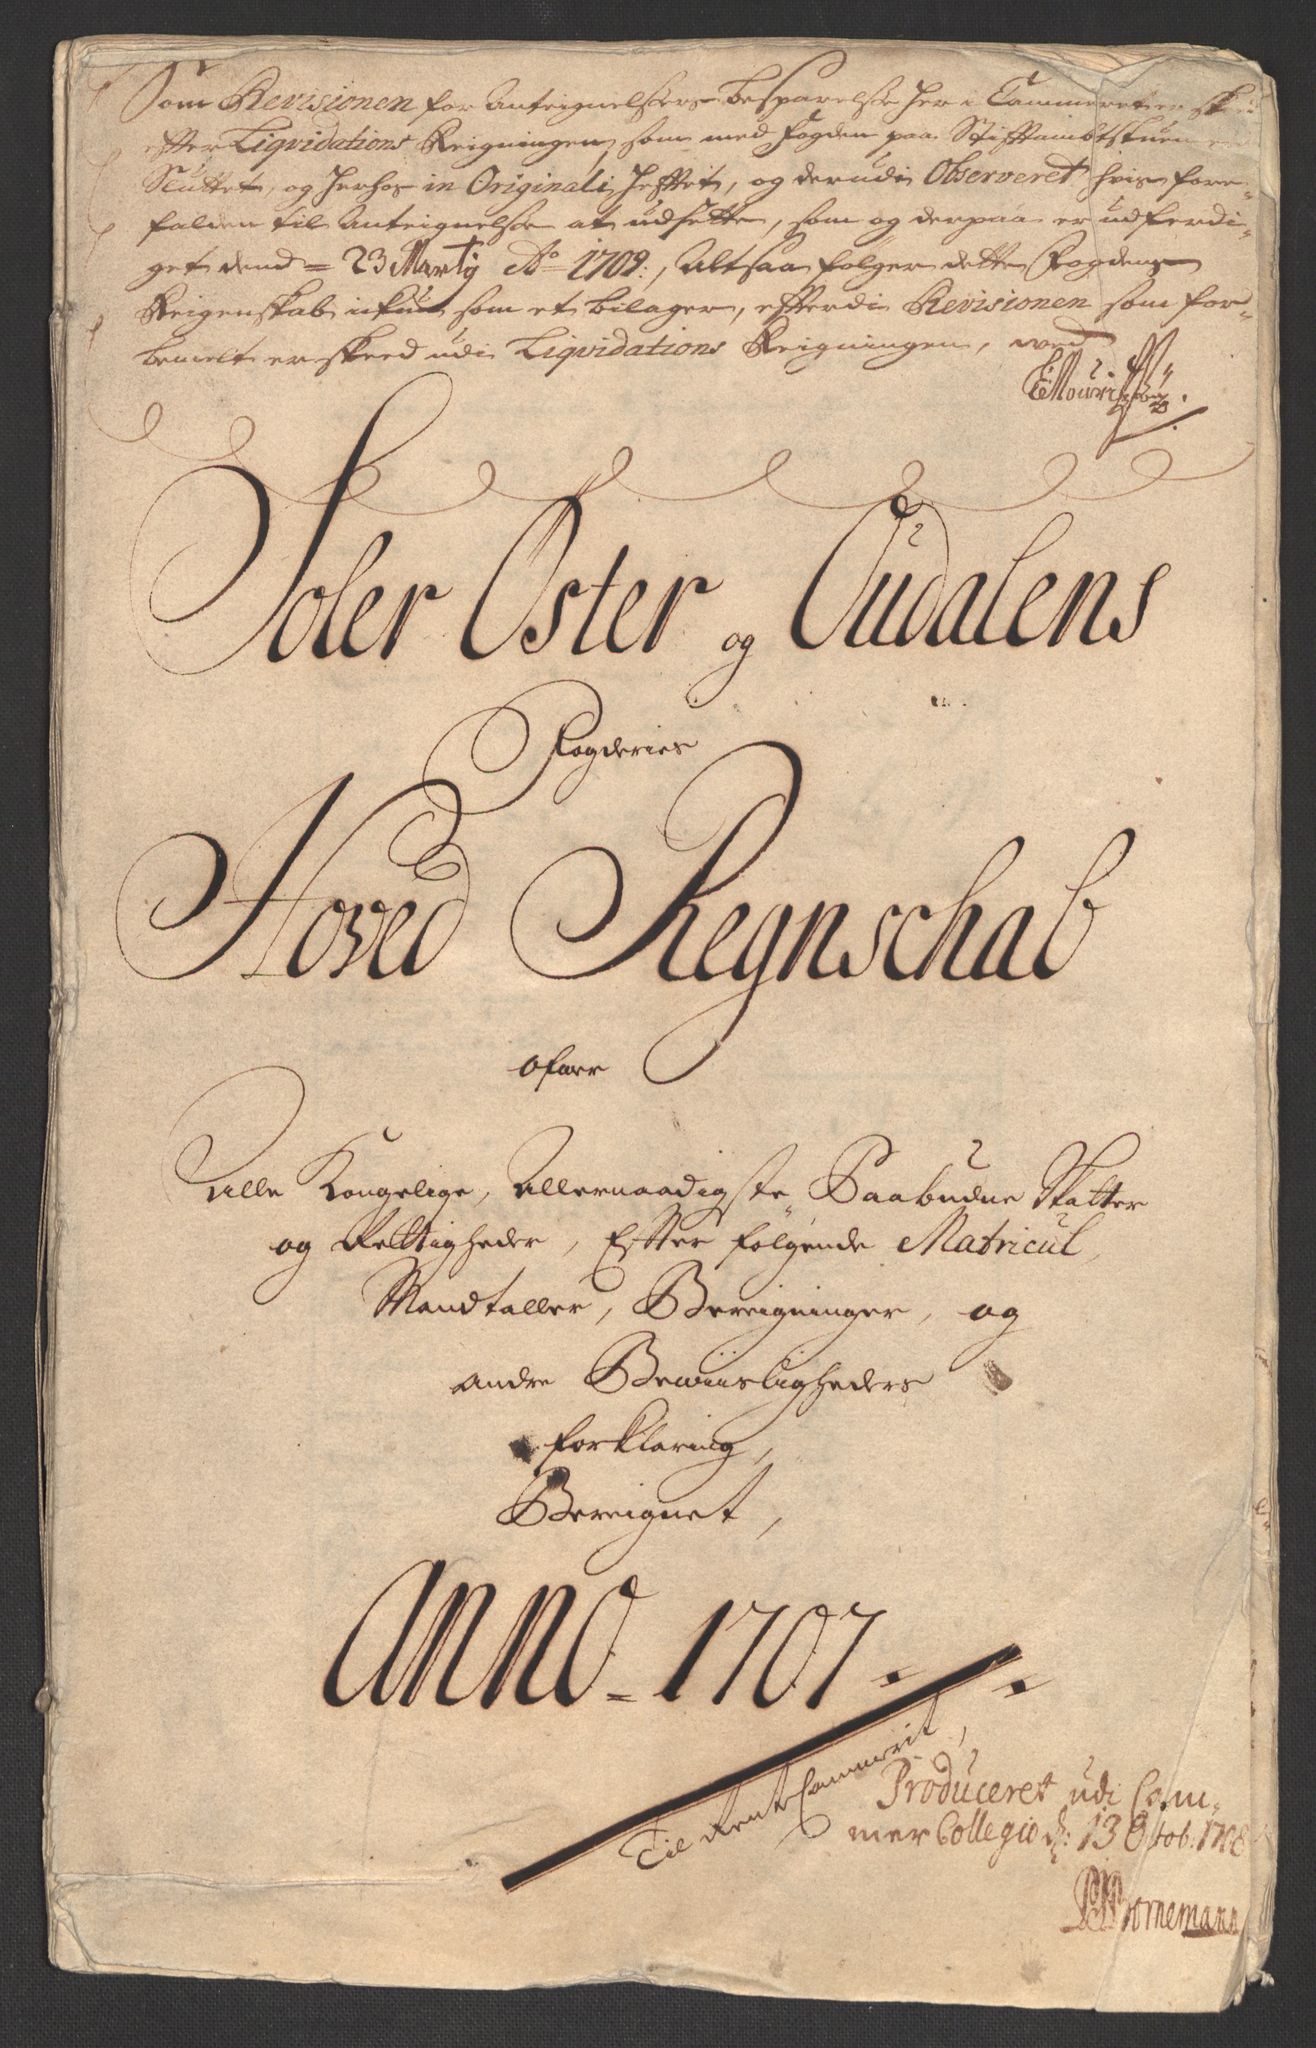 Som Revisionen for Anteignelsers besparelse her i Cammeret er skeed
efter Liqvidations Reigningen, som med Fogden paa Stiftambtstuen er
Sluttet, og herhos in Originali hefftet, og derudi Observeret hvis fore-
falden til Anteignelse at udsette, som og derpaa er udferdi-
get dend 23 Marty Ao 1709, Altsaa følger dette Fogdens
Reigenskab ickun som et bilager, efterdi Revisionen som for-
bemelt er skeed udi Liqvidations Reigningen, ved
Soler Oster og Oudalens
Fogderies
Hoved Regnschab
ofuer
Alle Kongelige, Allernaadigste Paabudne Skatter
og Rettigheder, Efter følgende Matricul,
Mandtaller, Bereigninger, og
andre Bewiisligheders
forklaring,
Bereignet,
Anno 1707.
Til Rente Cammerit,
Produceret udi Cam-
mer Collegio d: 13 Octob: 1708
Bornemann